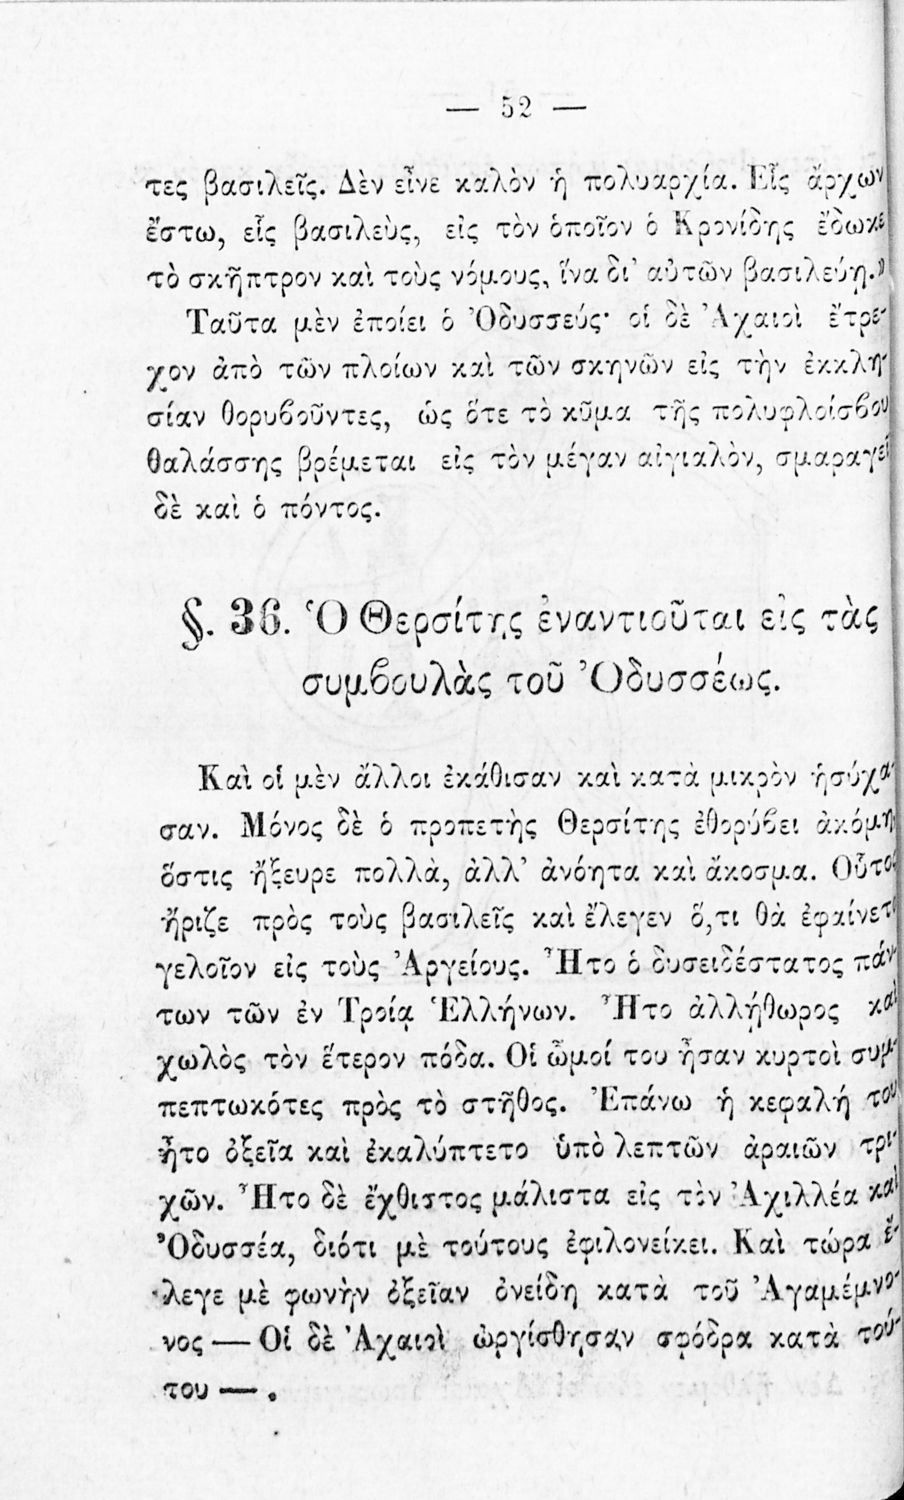 — 52 —
τες βασιλεῖς. Δὲν εἶνε καλὸν ἡ πολυαρχία. Εἷς ἄρχων
ἔστω, εἷς βασιλεὺς, εἰς τὸν ὁποῖον ὁ Κρονίδης ἔδωκε
τὸ σκῆπτρον καὶ τοὺς νόμους, ἵνα δι' αὐτῶν βασιλεύῃ.»
Ταῦτα μὲν ἐποίει ὁ Ὀδυσσεύς· οἱ δὲ Ἀχαιοὶ ἔτρε-
χον ἀπὸ τῶν πλοίων καὶ τῶν σκηνῶν εἰς τὴν ἐκκλη-
σίαν θορυβοῦντες, ὡς ὅτε τὸ κῦμα τῆς πολυφλοίσβου
θαλάσσης βρέμεται εἰς τὸν μέγαν αἰγιαλὸν, σμαραγεῖ
δὲ καὶ ὁ πόντος.
§. 36. Ὁ Θερσίτης ἐναντιοῦται εἰς τὰς
συμβουλὰς τοῦ Ὀδυσσέως.
Καὶ οἱ μὲν ἄλλοι ἐκάθισαν καὶ κατὰ μικρὸν ἡσύχα-
σαν. Μόνος δὲ ὁ προπετὴς Θερσίτης ἐθορύβει ἀκόμη,
ὅστις ἤξευρε πολλὰ, ἀλλ' ἀνόητα καὶ ἄκοσμα. Οὗτος
ἤριζε πρὸς τοὺς βασιλεῖς καὶ ἔλεγεν ὅ,τι θὰ ἐφαίνετο
γελοῖον εἰς τοὺς Ἀργείους. Ἦτο ὁ δυσειδέστατος πάν-
των τῶν ἐν Τροίᾳ Ἑλλήνων. Ἦτο ἀλλήθωρος καὶ
χωλὸς τὸν ἕτερον πόδα. Οἱ ὦμοί του ἦσαν κυρτοὶ συμ-
πεπτωκότες πρὸς τὸ στῆθος. Ἐπάνω ἡ κεφαλή του
ἦτο ὀξεῖα καὶ ἐκαλύπτετο ὑπὸ λεπτῶν ἀραιῶν τρι-
χῶν. Ἦτο δὲ ἔχθιστος μάλιστα εἰς τὸν Ἀχιλλέα καὶ
Ὀδυσσέα, διότι μὲ τούτους ἐφιλονείκει. Καὶ τώρα ἔ-
λεγε μὲ φωνὴν ὀξεῖαν ὀνείδη κατὰ τοῦ Ἀγαμέμνο-
νος — Οἱ δὲ Ἀχαιοὶ ὠργίσθησαν σφόδρα κατὰ τού-
του — .